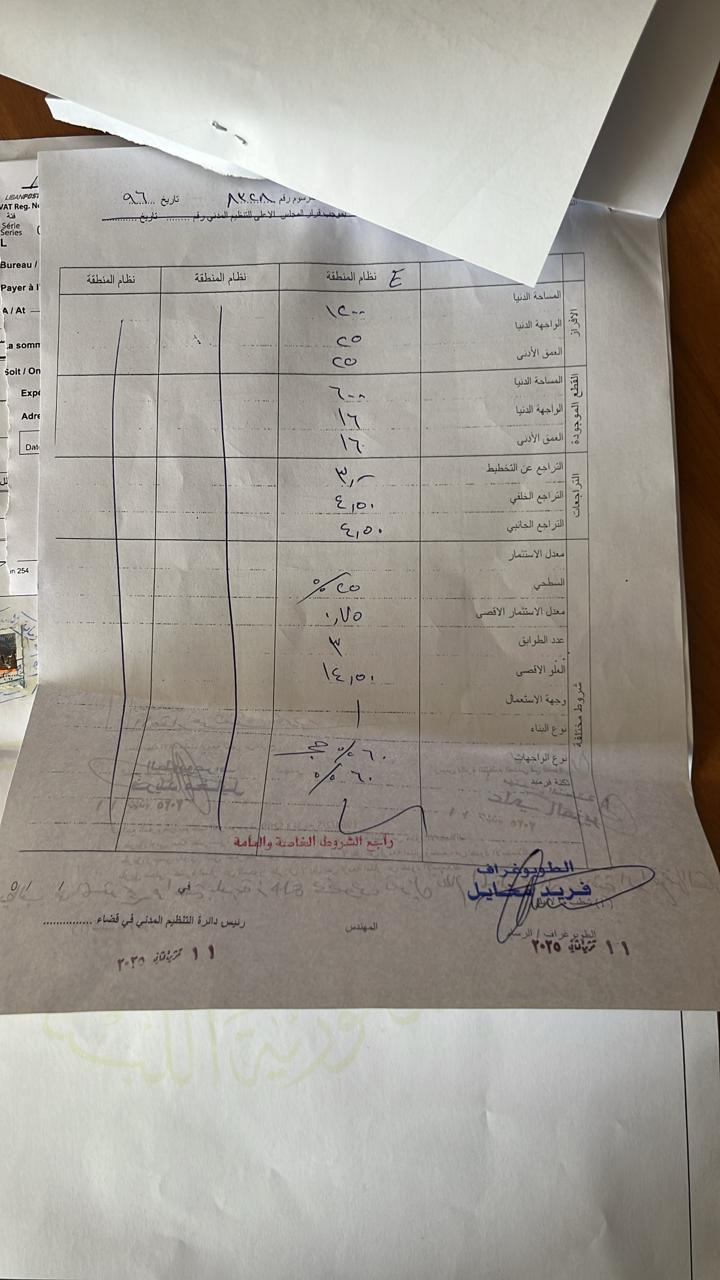 مرسوم رقم ٨٣٢٨ تاريخ ٩٦
بموجب قرار المجلس الاعلى للتنظيم المدني رقم ......... تاريخ
نظام المنطقة E نظام المنطقة نظام المنطقة
الافراز
المساحة الدنيا ١٢٠٠
الواجهة الدنيا ٢٥
العمق الأدنى ٢٥
القطع الموجودة
المساحة الدنيا ٦٠٠
الواجهة الدنيا ١٦
العمق الأدنى ١٦
التراجعات
التراجع عن التخطيط ٣,٠٠
التراجع الخلفي ٤,٥٠
التراجع الجانبي ٤,٥٠
شروط مختلفة
معدل الاستثمار
السطحي ٢٥ %
معدل الاستثمار الاقصى ٠,٧٥
عدد الطوابق ٣
العلو الاقصى ١٤,٥٠
وجهة الاستعمال
نوع البناء
نوع الواجهات ٦٠ % حجر
تكنة قرميد ٦٠ %
راجع الشروط الخاصة والعامة
الطوبوغراف
فريد مخايل
الطوبوغراف / الرسام
١١ تشرين الثاني ٢٠٢٥
المهندس
في / /
رئيس دائرة التنظيم المدني في قضاء ..............
١١ تشرين الثاني ٢٠٢٥
LIBANPOST
VAT Reg. N
فئة
Série
Series
L
Bureau /
Payer à l'
A / At
La somm
Soit / On
Expé
Adre
Dat